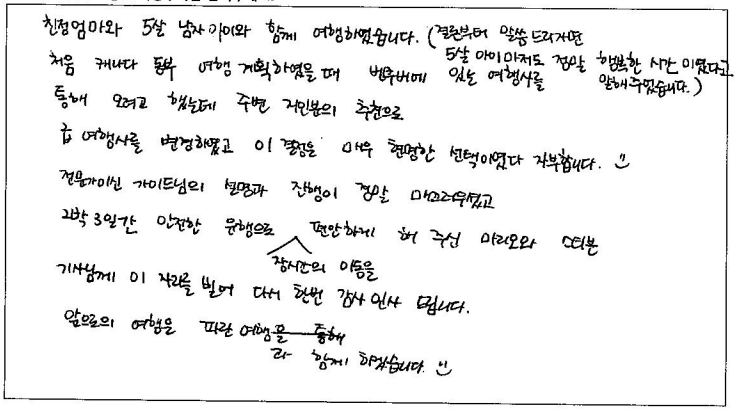 친정엄마와 5살 남자아이와 함께 여행하였습니다. (결론부터 말씀드리자면
5살 아이마저도 정말 행복한 시간이였다고
말해주었습니다.)
처음 캐나다 동부 여행 계획하였을때 밴쿠버에 있는 여행사를
통해 오려고 했는데 주변 지인분의 추천으로
급 여행사를 변경하였고 이 결정을 매우 현명한 선택이였다 자부합니다.
전문가이신 가이드님의 설명과 진행이 정말 매끄러우셨고
2박 3일간 안전한 운행으로 편안하게 해 주신 마리오와 스티븐
장시간의 이동을
기사님께 이 자리를 빌어 다시 한번 감사 인사 드립니다.
앞으로의 여행을 파란여행을 통해
과 함께 하겠습니다.